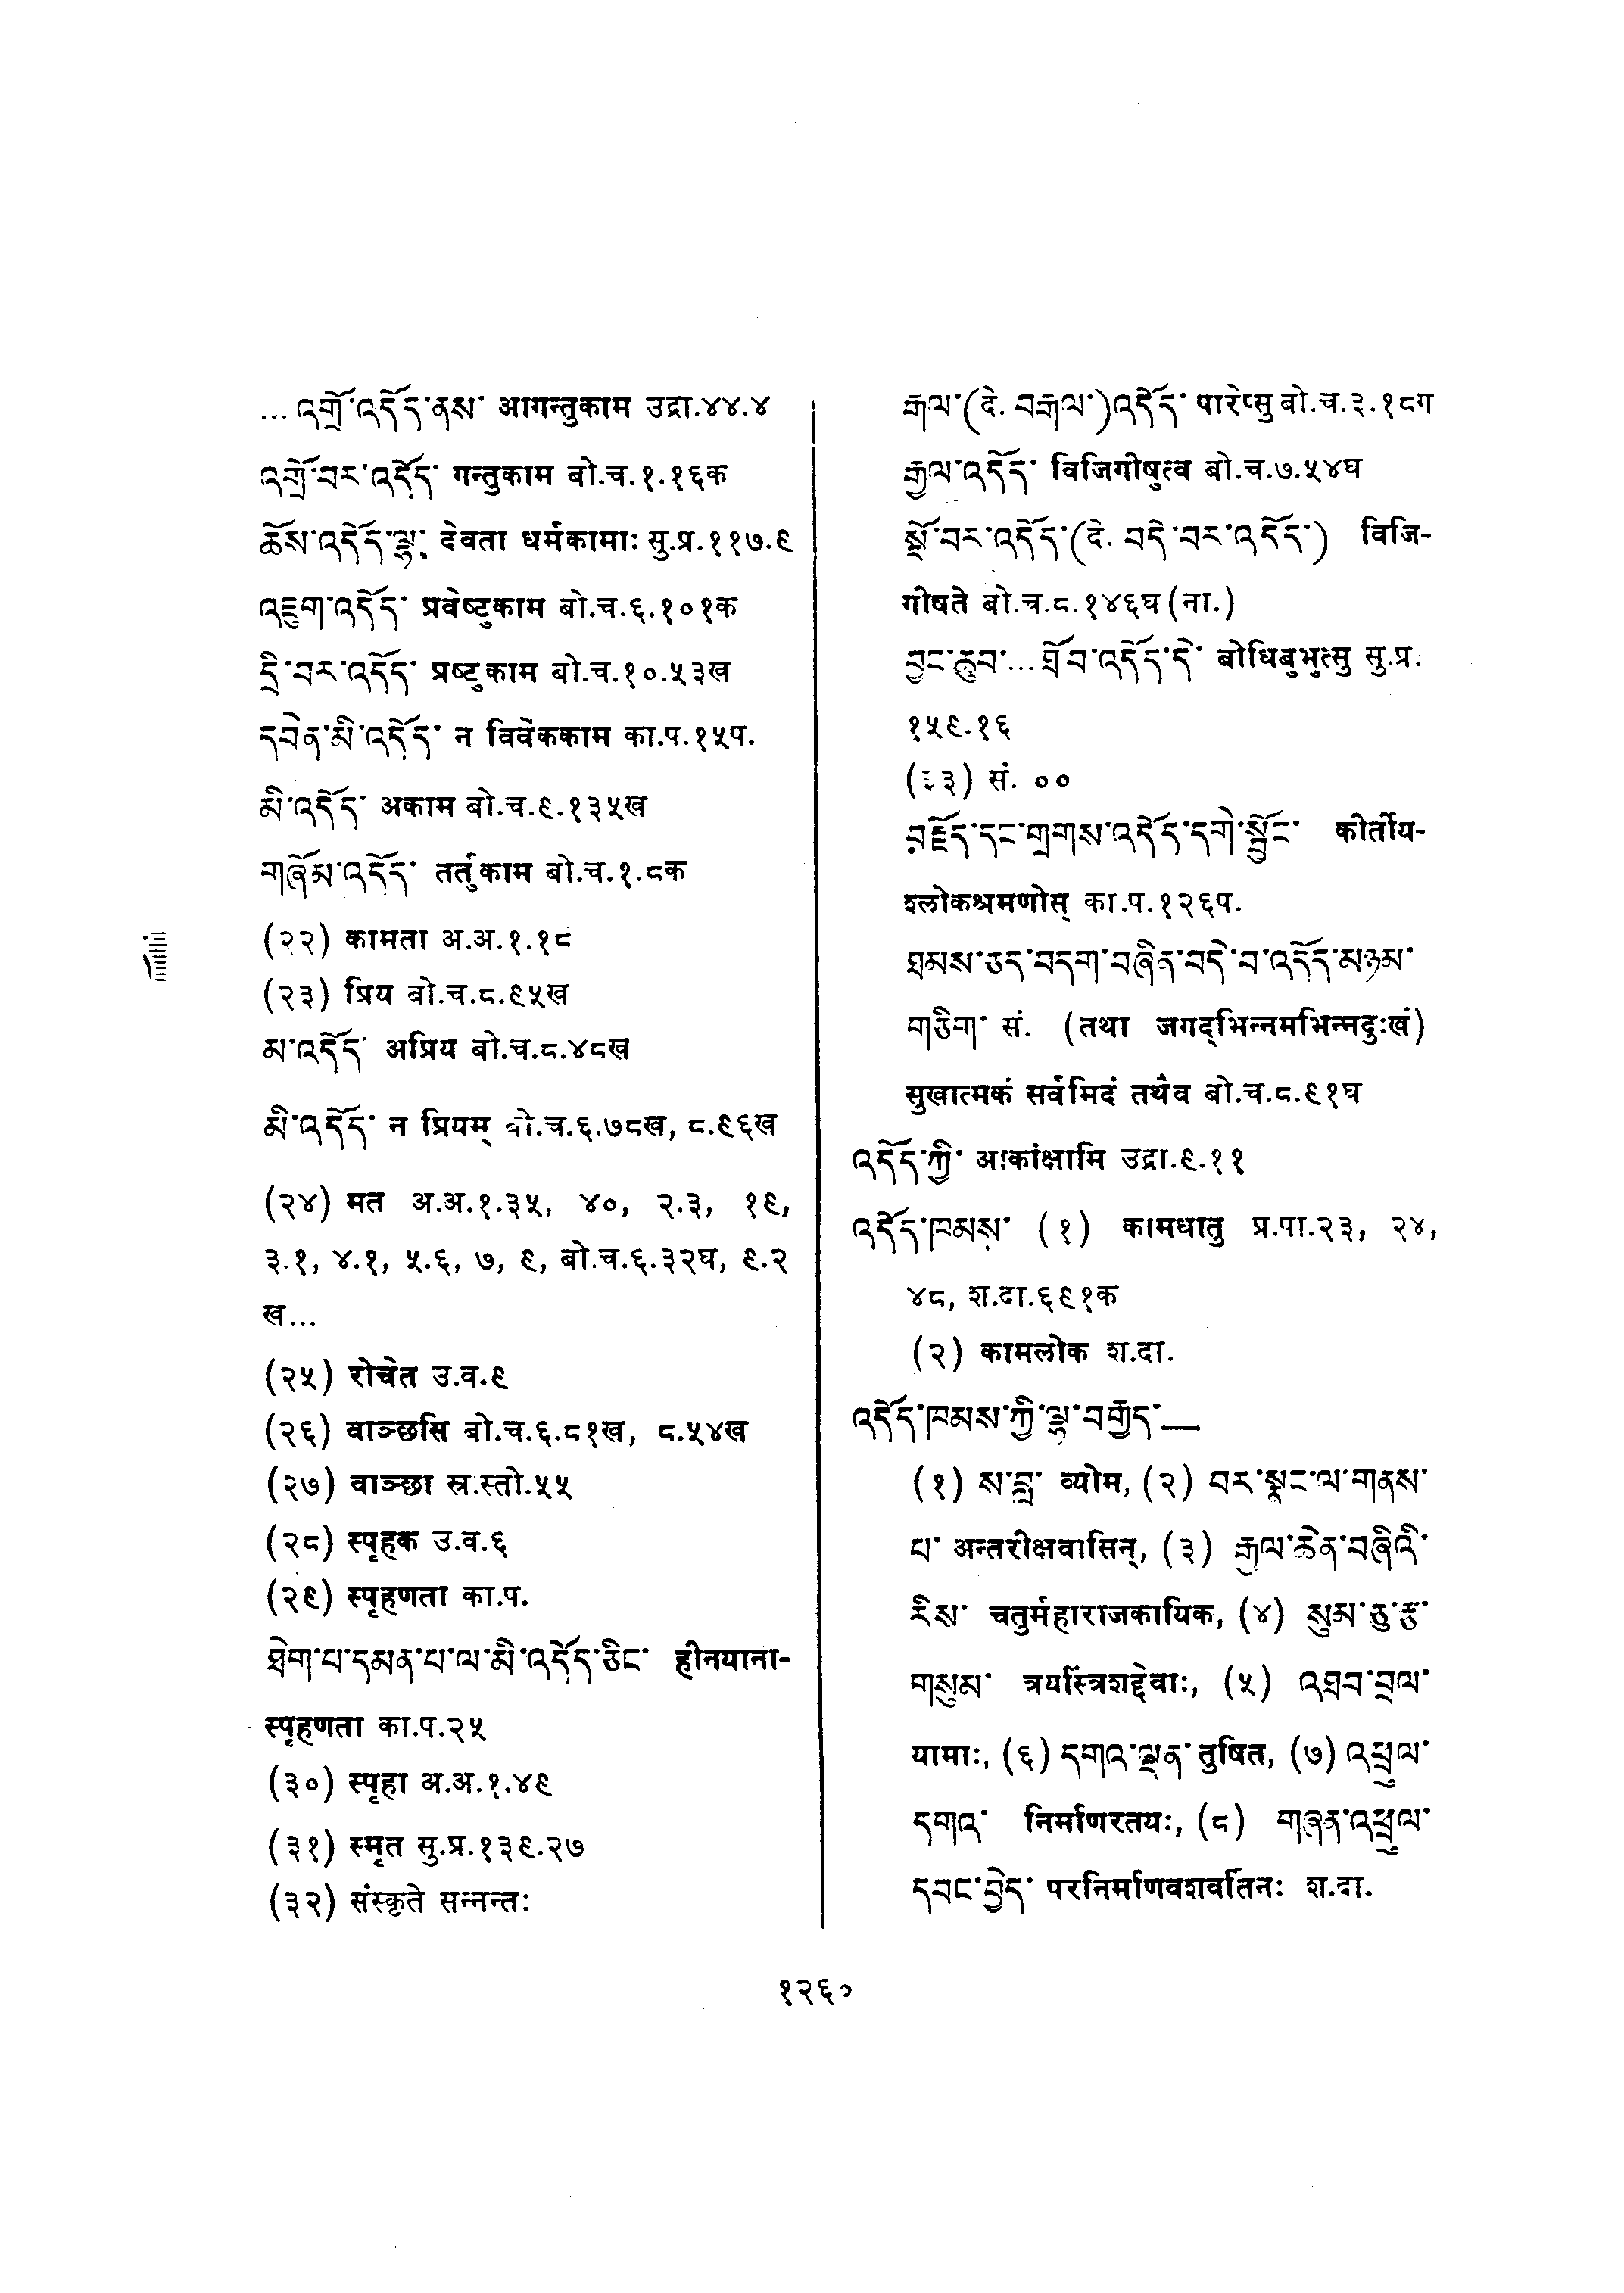 ... འགྲོ་འདོད་ནས་ आगन्तुकाम उद्रा.४४.४
འགྲོ་བར་འདོད་ गन्तुकाम बो.च.१.१६क
ཆོས་འདོད་ལྷ་ देवता धर्मकामाः सु.प्र.११७.९
འཇུག་འདོད་ प्रवेष्टुकाम बो.च.६.१०१क
དྲི་བར་འདོད་ प्रष्टुकाम बो.च.१०.५३ख
དབེན་མི་འདོད་ न विवेककाम का.प.१५प.
མི་འདོད་ अकाम बो.च.९.१३५ख
གཞོམ་འདོད་ तर्तुकाम बो.च.१.८क
(२२) कामता अ.अ.१.१८
(२३) प्रिय बो.च.८.९५ख
མ་འདོད་ अप्रिय बो.च.८.४८ख
མི་འདོད་ न प्रियम् बो.च.६.७८ख, ८.९६ख
(२४) मत अ.अ.१.३५, ४०, २.३, १९,
३.१, ४.१, ५.६, ७, ९, बो.च.६.३२घ, ९.२
ख...
(२५) रोचेत उ.व.९
(२६) वाञ्छसि बो.च.६.८१ख, ८.५४ख
(२७) वाञ्छा स्र.स्तो.५५
(२८) स्पृहक उ.व.६
(२९) स्पृहणता का.प.
ཐེག་པ་དམན་པ་ལ་མི་འདོད་ཅིང་ हीनयाना-
स्पृहणता का.प.२५
(३०) स्पृहा अ.अ.१.४९
(३१) स्मृत सु.प्र.१३९.२७
(३२) संस्कृते सन्नन्तः
རྒལ་(दे. བརྒལ་)འདོད་ पारेप्सु बो.च.३.१८ग
རྒྱལ་འདོད་ विजिगीषुत्व बो.च.७.५४घ
སྨོ་བར་འདོད་(दे. བདེ་བར་འདོད་) विजि-
गीषते बो.च.८.१४६घ (ना.)
བྱང་ཆུབ་... ཐོབ་འདོད་དེ་ बोधिबुभुत्सु सु.प्र.
१५९.१६
(३३) सं. ००
བརྗོད་དང་གྲགས་འདོད་དགེ་སློང་ कीर्तीय-
श्लोकश्रमणोस् का.प.१२६प.
ཐམས་ཅད་བདག་བཞིན་བདེ་བ་འདོད་མཉམ་
གཅིག་ सं. (तथा जगद्भिन्नमभिन्नदुःखं)
सुखात्मकं सर्वमिदं तथैव बो.च.८.९१घ
འདོད་ཀྱི་ आकांक्षामि उद्रा.९.११
འདོད་ཁམས་ (१) कामधातु प्र.पा.२३, २४,
४८, श.दा.६९१क
(२) कामलोक श.दा.
འདོད་ཁམས་ཀྱི་ལྷ་བརྒྱད་—
(१) ས་བླ་ व्योम, (२) བར་སྣང་ལ་གནས་
པ་ अन्तरीक्षवासिन्, (३) རྒྱལ་ཆེན་བཞིའི་
རིས་ चतुर्महाराजकायिक, (४) སུམ་ཅུ་རྩ་
གསུམ་ त्रयस्त्रिंशद्देवाः, (५) འཐབ་བྲལ་
यामाः, (६) དགའ་ལྡན་ तुषित, (७) འཕྲུལ་
དགའ་ निर्माणरतयः, (८) གཞན་འཕྲུལ་
དབང་བྱེད་ परनिर्माणवशवर्तिनः श.दा.
१२६०